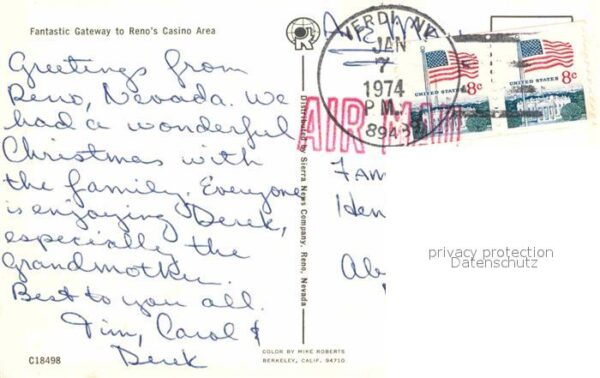 Fantastic Gateway to Reno's Casino Area
Greetings from
Reno, Nevada. We
had a wonderful
Christmas with
the family. Everyone
is enjoying Derek,
especially the
Grandmother.
Best to you all.
Jim, Carol &
Derek
C18498
Distributed by Sierra News Company, Reno, Nevada
COLOR BY MIKE ROBERTS
BERKELEY, CALIF. 94710
VERDI, NV
JAN
7
1974
P.M.
AIR MAIL
UNITED STATES 8c
UNITED STATES 8c
privacy protection
Datenschutz